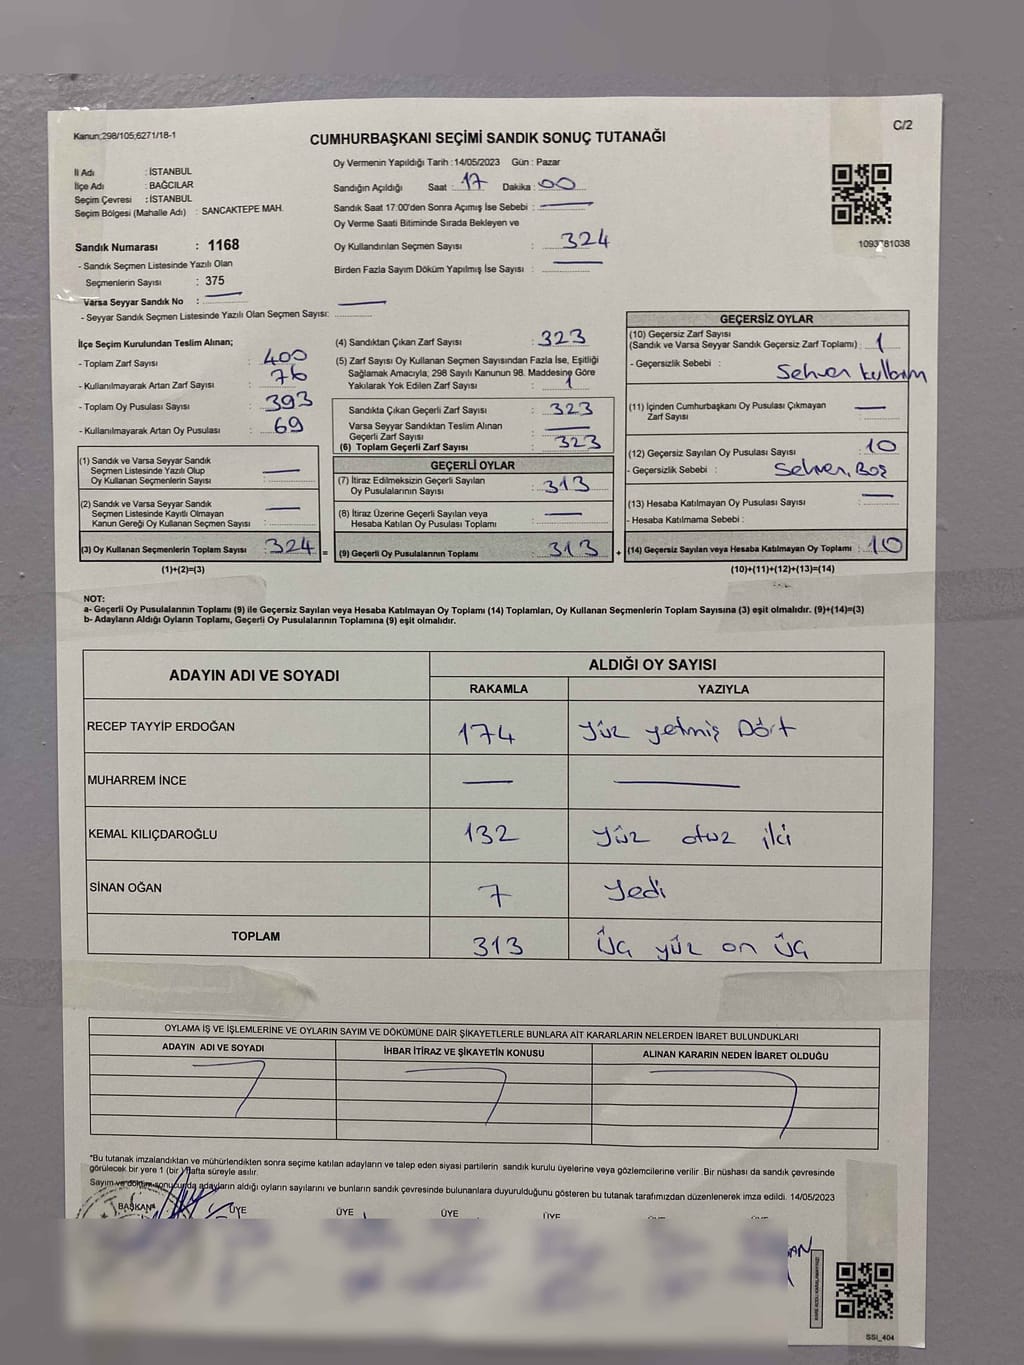 Kanun;298/105;6271/18-1
C/2
CUMHURBAŞKANI SEÇİMİ SANDIK SONUÇ TUTANAĞI
İl Adı : İSTANBUL
İlçe Adı : BAĞCILAR
Seçim Çevresi : İSTANBUL
Seçim Bölgesi (Mahalle Adı) : SANCAKTEPE MAH.
Sandık Numarası : 1168
- Sandık Seçmen Listesinde Yazılı Olan
Seçmenlerin Sayısı : 375
Varsa Seyyar Sandık No : —
- Seyyar Sandık Seçmen Listesinde Yazılı Olan Seçmen Sayısı: —
Oy Vermenin Yapıldığı Tarih : 14/05/2023 Gün : Pazar
Sandığın Açıldığı Saat : 17 Dakika : 00
Sandık Saat 17:00'den Sonra Açımış İse Sebebi : —
Oy Verme Saati Bitiminde Sırada Bekleyen ve
Oy Kullandırılan Seçmen Sayısı : 324
Birden Fazla Sayım Döküm Yapılmış İse Sayısı : —
1093781038
İlçe Seçim Kurulundan Teslim Alınan;
- Toplam Zarf Sayısı : 400
- Kullanılmayarak Artan Zarf Sayısı : 76
- Toplam Oy Pusulası Sayısı : 393
- Kullanılmayarak Artan Oy Pusulası : 69
(1) Sandık ve Varsa Seyyar Sandık
Seçmen Listesinde Yazılı Olup
Oy Kullanan Seçmenlerin Sayısı : —
(2) Sandık ve Varsa Seyyar Sandık
Seçmen Listesinde Kayıtlı Olmayan
Kanun Gereği Oy Kullanan Seçmen Sayısı : —
(3) Oy Kullanan Seçmenlerin Toplam Sayısı : 324 =
(1)+(2)=(3)
(4) Sandıktan Çıkan Zarf Sayısı : 323
(5) Zarf Sayısı Oy Kullanan Seçmen Sayısından Fazla İse, Eşitliği
Sağlamak Amacıyla; 298 Sayılı Kanunun 98. Maddesine Göre
Yakılarak Yok Edilen Zarf Sayısı : 1
Sandıkta Çıkan Geçerli Zarf Sayısı : 323
Varsa Seyyar Sandıktan Teslim Alınan
Geçerli Zarf Sayısı : —
(6) Toplam Geçerli Zarf Sayısı : 323
GEÇERLİ OYLAR
(7) İtiraz Edilmeksizin Geçerli Sayılan
Oy Pusulalarının Sayısı : 313
(8) İtiraz Üzerine Geçerli Sayılan veya
Hesaba Katılan Oy Pusulası Toplamı : —
(9) Geçerli Oy Pusulalarının Toplamı : 313 +
GEÇERSİZ OYLAR
(10) Geçersiz Zarf Sayısı
(Sandık ve Varsa Seyyar Sandık Geçersiz Zarf Toplamı) : 1
- Geçersizlik Sebebi :
(11) İçinden Cumhurbaşkanı Oy Pusulası Çıkmayan
Zarf Sayısı : —
(12) Geçersiz Sayılan Oy Pusulası Sayısı : 10
- Geçersizlik Sebebi : Sehven, Boş
(13) Hesaba Katılmayan Oy Pusulası Sayısı : —
- Hesaba Katılmama Sebebi :
(14) Geçersiz Sayılan veya Hesaba Katılmayan Oy Toplamı : 10
(10)+(11)+(12)+(13)=(14)
NOT:
a- Geçerli Oy Pusulalarının Toplamı (9) ile Geçersiz Sayılan veya Hesaba Katılmayan Oy Toplamı (14) Toplamları, Oy Kullanan Seçmenlerin Toplam Sayısına (3) eşit olmalıdır. (9)+(14)=(3)
b- Adayların Aldığı Oyların Toplamı, Geçerli Oy Pusulalarının Toplamına (9) eşit olmalıdır.
ADAYIN ADI VE SOYADI ALDIĞI OY SAYISI
RAKAMLA YAZIYLA
RECEP TAYYİP ERDOĞAN 174 Yüz yetmiş Dört
MUHARREM İNCE — —
KEMAL KILIÇDAROĞLU 132 Yüz otuz iki
SİNAN OĞAN 7 Yedi
TOPLAM 313 Üç yüz on üç
OYLAMA İŞ VE İŞLEMLERİNE VE OYLARIN SAYIM VE DÖKÜMÜNE DAİR ŞİKAYETLERLE BUNLARA AİT KARARLARIN NELERDEN İBARET BULUNDUKLARI
ADAYIN ADI VE SOYADI İHBAR İTİRAZ VE ŞİKAYETİN KONUSU ALINAN KARARIN NEDEN İBARET OLDUĞU
*Bu tutanak imzalandıktan ve mühürlendikten sonra seçime katılan adayların ve talep eden siyasi partilerin sandık kurulu üyelerine veya gözlemcilerine verilir. Bir nüshası da sandık çevresinde
görülecek bir yere 1 (bir) Hafta süreyle asılır.
Sayım ve döküm sonucunda adayların aldığı oyların sayılarını ve bunların sandık çevresinde bulunanlara duyurulduğunu gösteren bu tutanak tarafımızdan düzenlenerek imza edildi. 14/05/2023
BAŞKAN ÜYE ÜYE ÜYE ÜYE
SSI_404